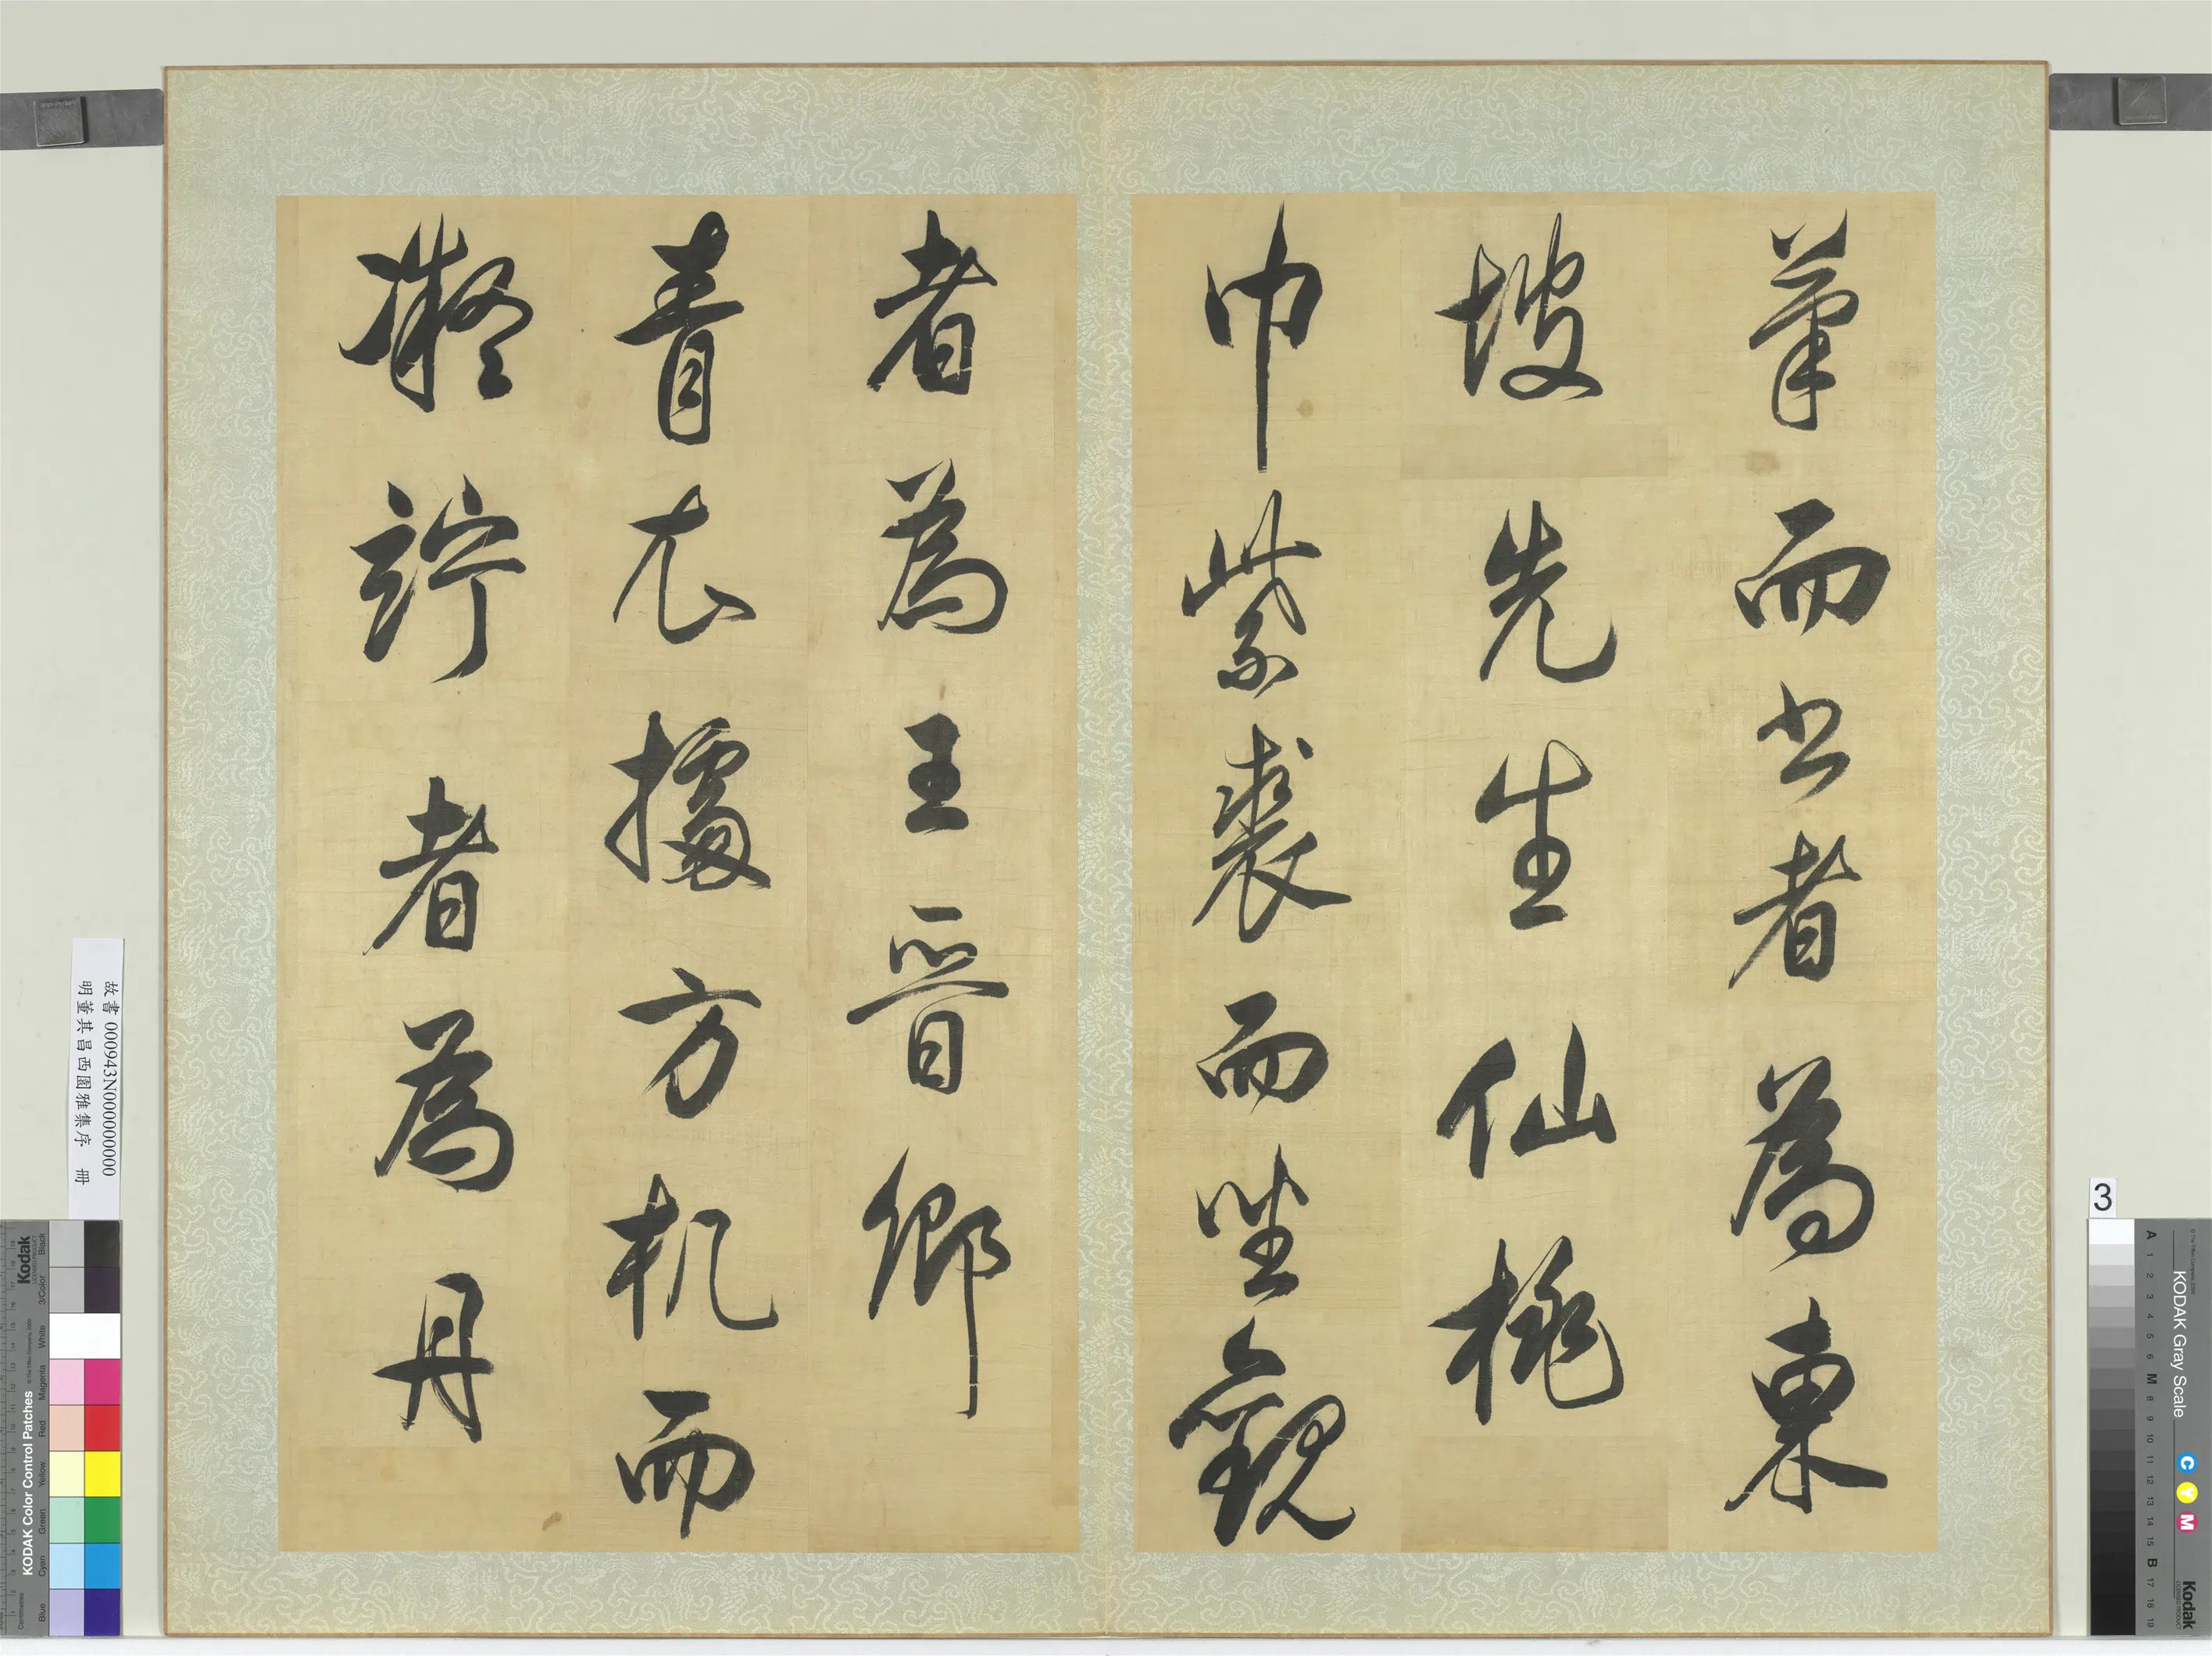 筆而書者為東
坡先生仙桃
巾紫裘而坐觀
者為王晉卿
青衣據方机而
凝竚者為丹
故書 000943N000000000
明董其昌西園雅集序 冊
3
Kodak
KODAK Color Control Patches
Blue Cyan Green Yellow Red Magenta White 3/Color Black
KODAK Gray Scale
C Y M
Kodak
A 1 2 3 4 5 6 M 8 9 10 11 12 13 14 15 B 17 18 19